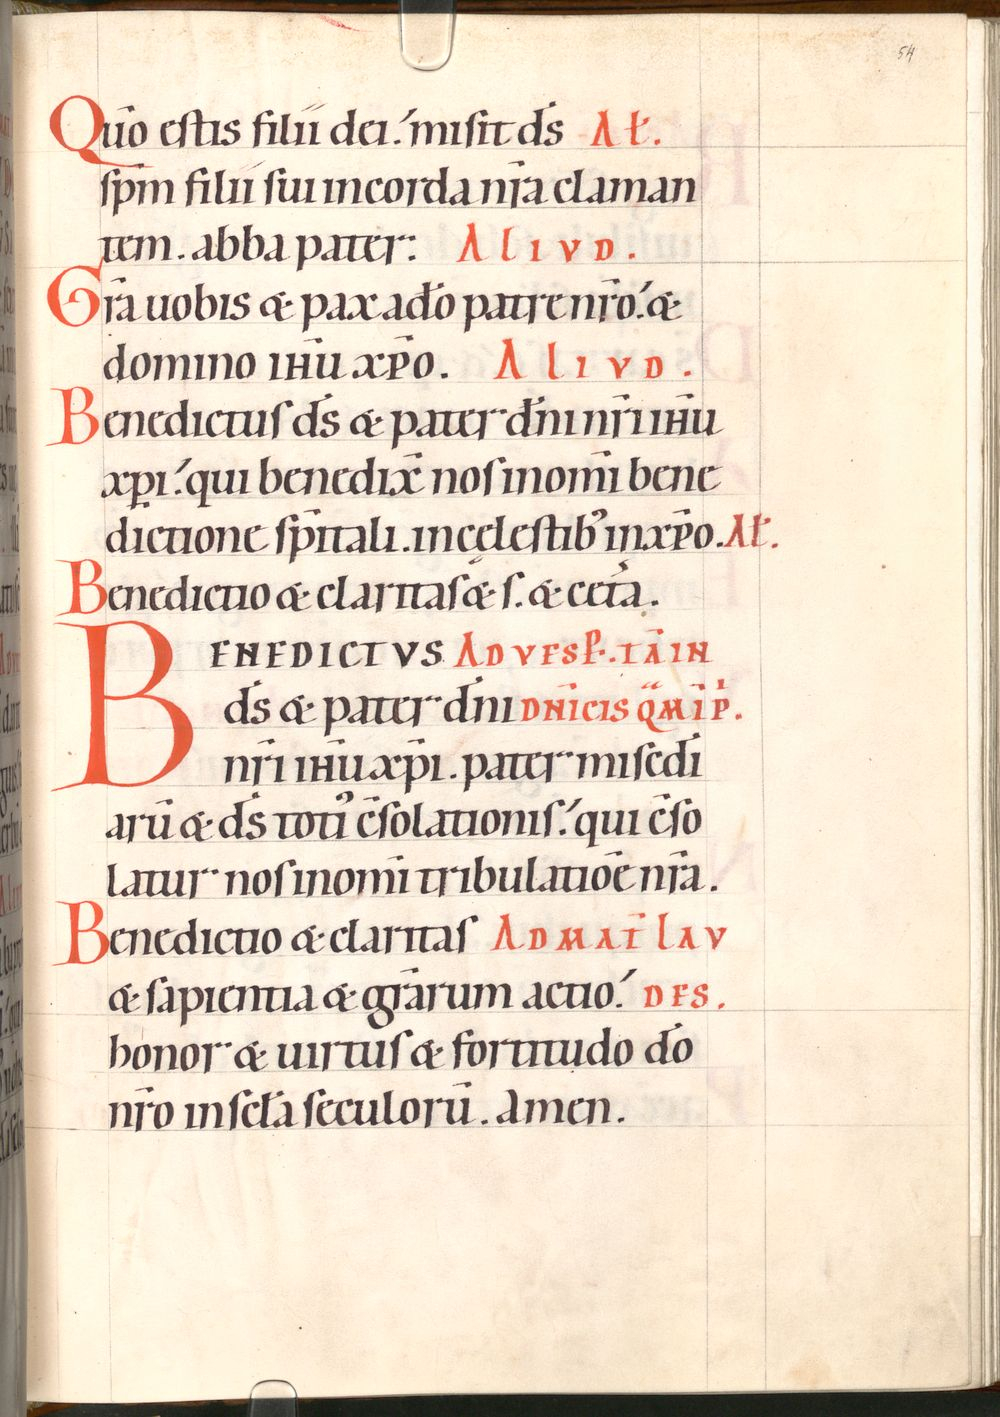 54
Qūo estis filii dei.' misit d̄s Al̄.
sp̄m filii sui in corda nr̄a claman
tem. abba pater: ALIVD.
Gr̄a uobis & pax a d̄o patre nr̄o.' &
domino ih̄u xp̄o. ALIVD.
Benedictus d̄s & pater dn̄i nr̄i ih̄u
xp̄i.' qui benedix̄ nos in om̄i bene
dictione sp̄itali. in cęlestib' in xp̄o. Al̄.
Benedictio & claritas & s. & cet̄a.
BENEDICTVS AD VESP̄. TAĪN
d̄s & pater dn̄i DN̄ICIS Q̄M̄IP̄.
nr̄i ih̄u xp̄i. pater mis̄edi
arū & d̄s toti' c̄solationis.' qui c̄so
latur nos in om̄i tribulatiōe nr̄a.
Benedictio & claritas AD MAT̄ LAV
& sapientia & gr̄arum actio.' DES.
honor & uirtus & fortitudo d̄o
nr̄o in scl̄a seculorū. Amen.